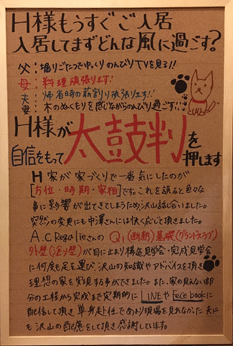 H様もうすぐご入居
入居してまずどんな風に過ごす?
父:掘りごたつでゆっくりのんびりTVを見る!!
母:料理頑張ります!
夫:帰省時の薪割り頑張ります!
妻:木のぬくもりを感じながらのんびり過ごす!!
H様が太鼓判を
自信をもって押します
H家が家づくりで一番気にしたのが
【お位・時期・家相】です。これを誤ると色々な
事に影響が出てきてしまうため沢山話合いました。
突然の変更にも中澤さんには快く応じて頂きました。
Q1(断熱)基礎(グランドスラブ)
外壁(塗り壁)が目に止まり構造見学会・完成見学会
に何度も足を運び、沢山の知識やアドバイスを頂き
理想の家を実現する事ができました。また、家の見えない部
分の工程から完成まで定期的にLINEやfacebookに
配信して頂き
にも沢山の配慮をして頂き感謝しています。